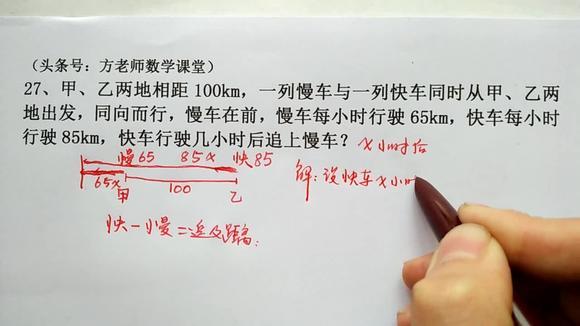 （头条号：方老师数学课堂）
27、甲、乙两地相距100km，一列慢车与一列快车同时从甲、乙两
地出发，同向而行，慢车在前，慢车每小时行驶65km，快车每小时
行驶85km，快车行驶几小时后追上慢车？ x小时后
慢65 85x 快85
65x 甲 100 乙
解：设快车x小时
快－慢＝追及距离：